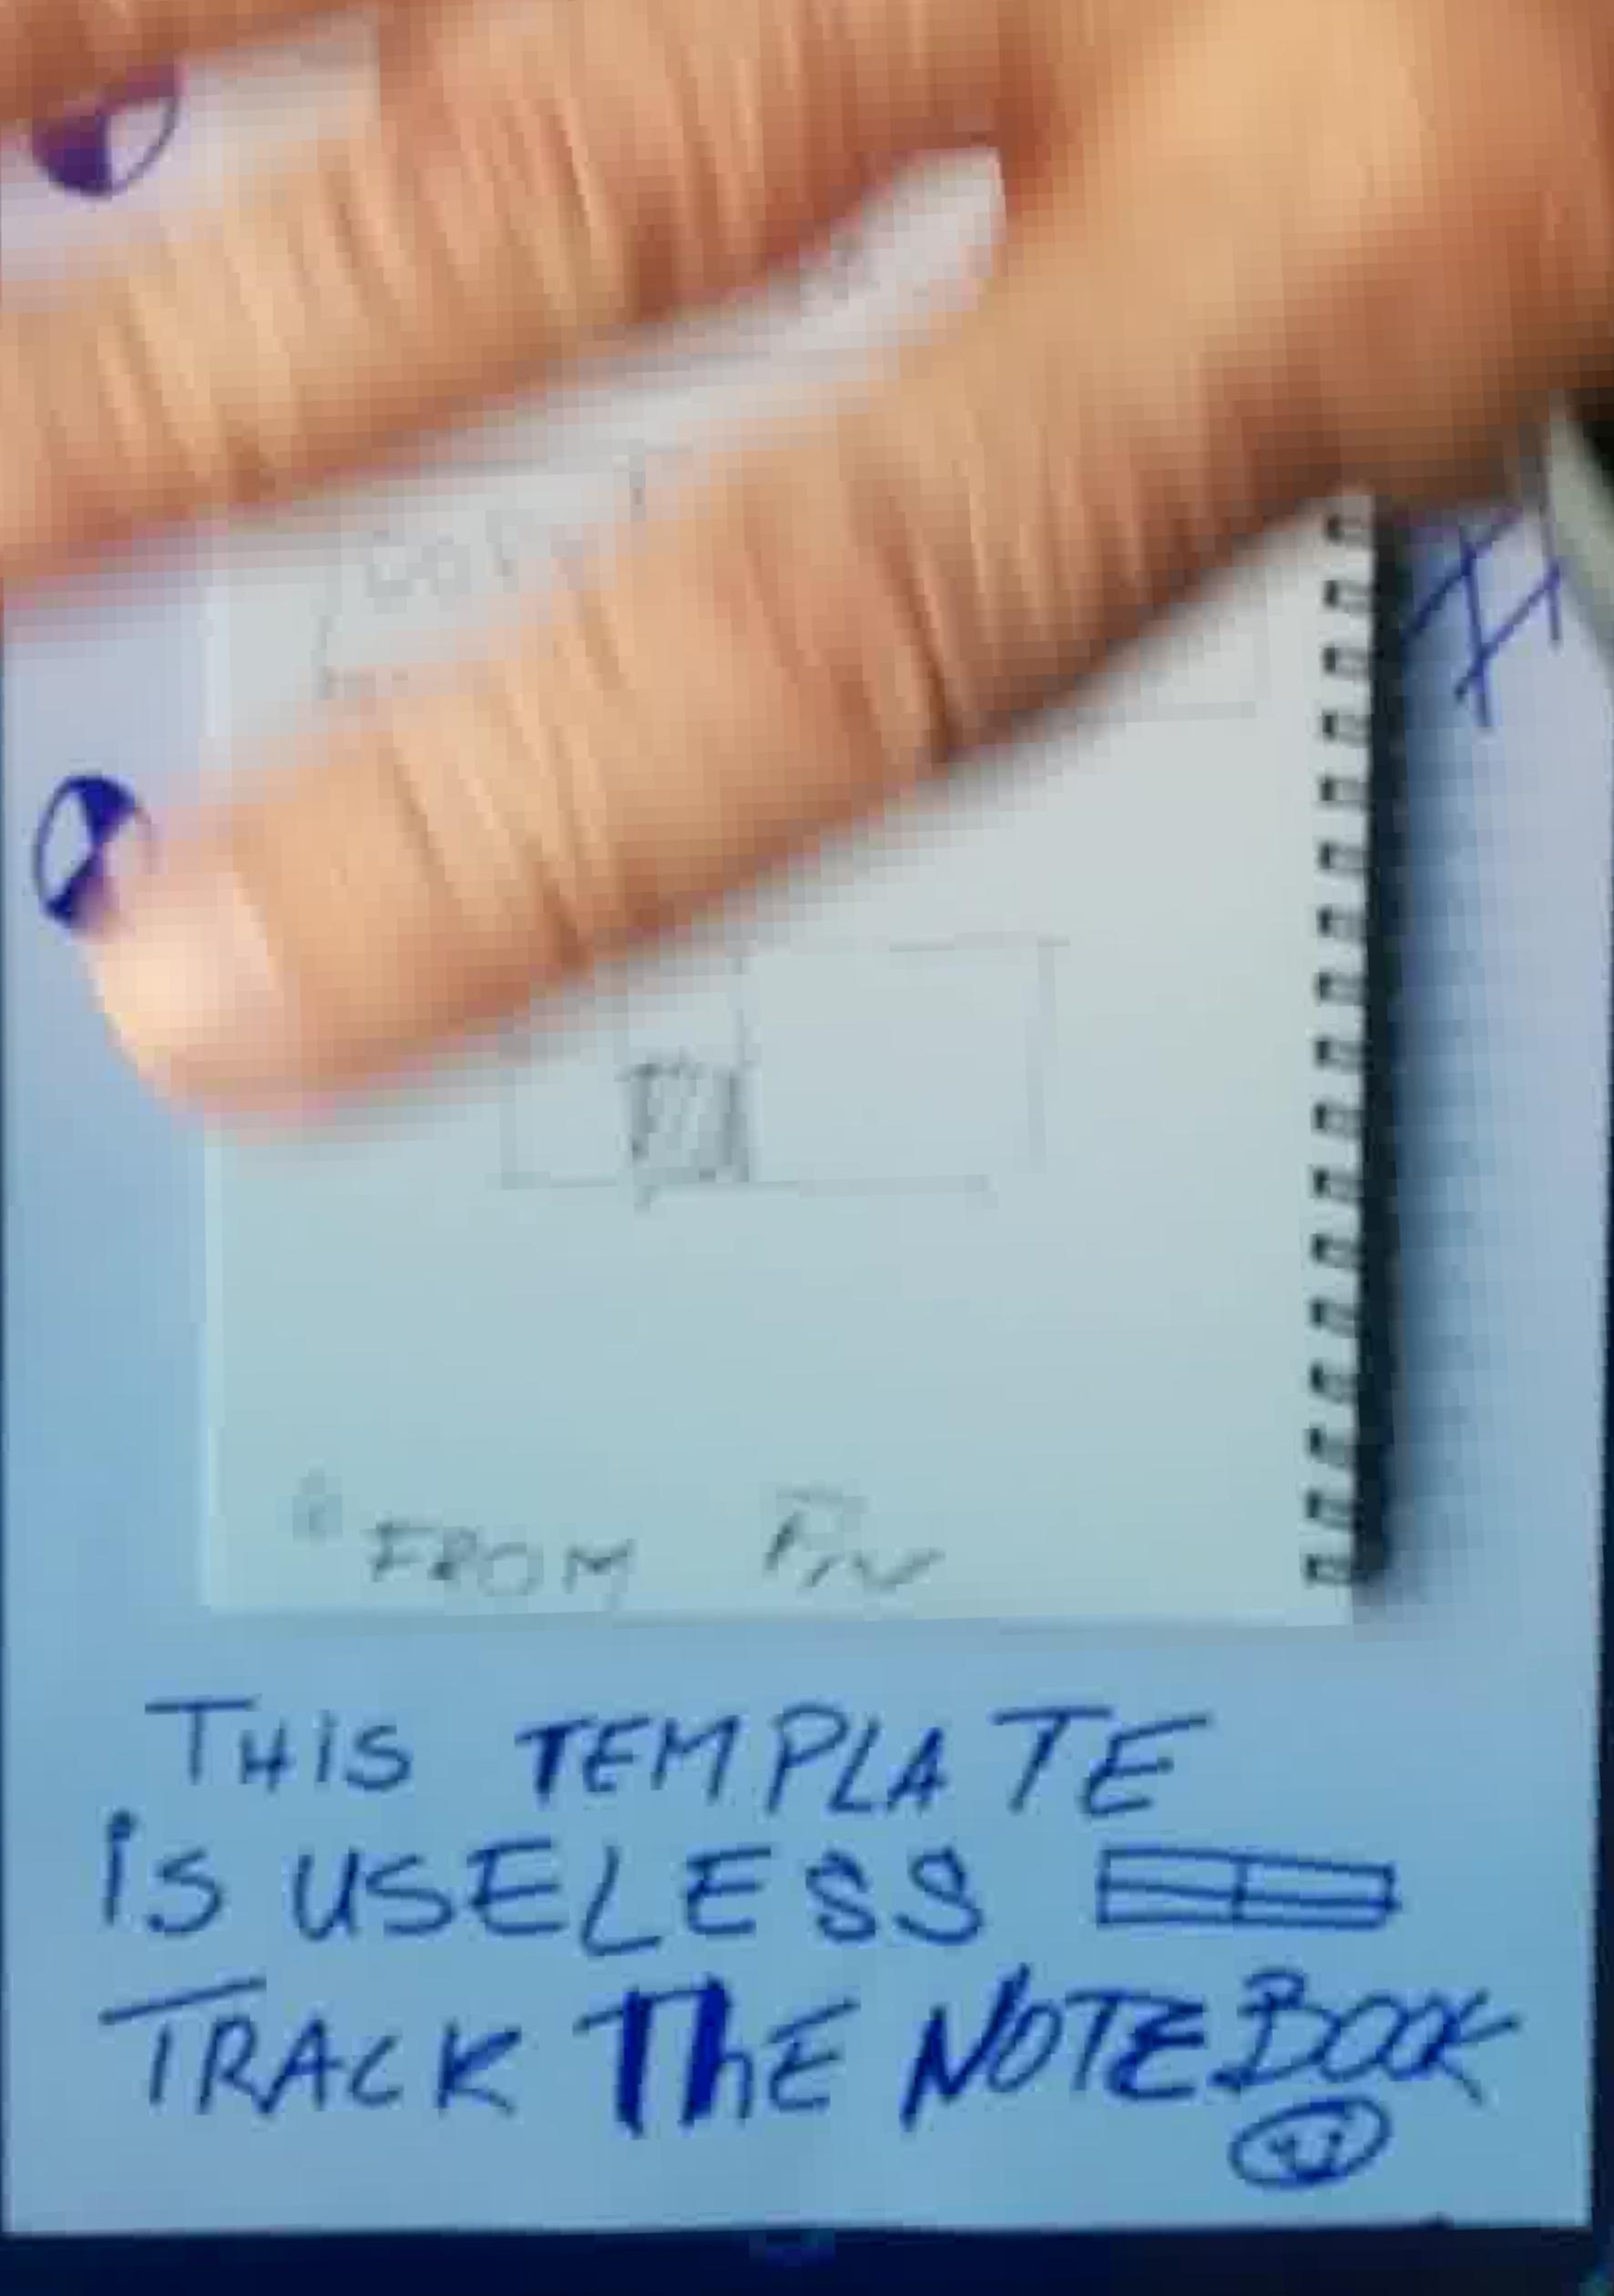 FROM
THiS TEMPLATE
iS USELESS
TRACK ThE NOTEBOOK